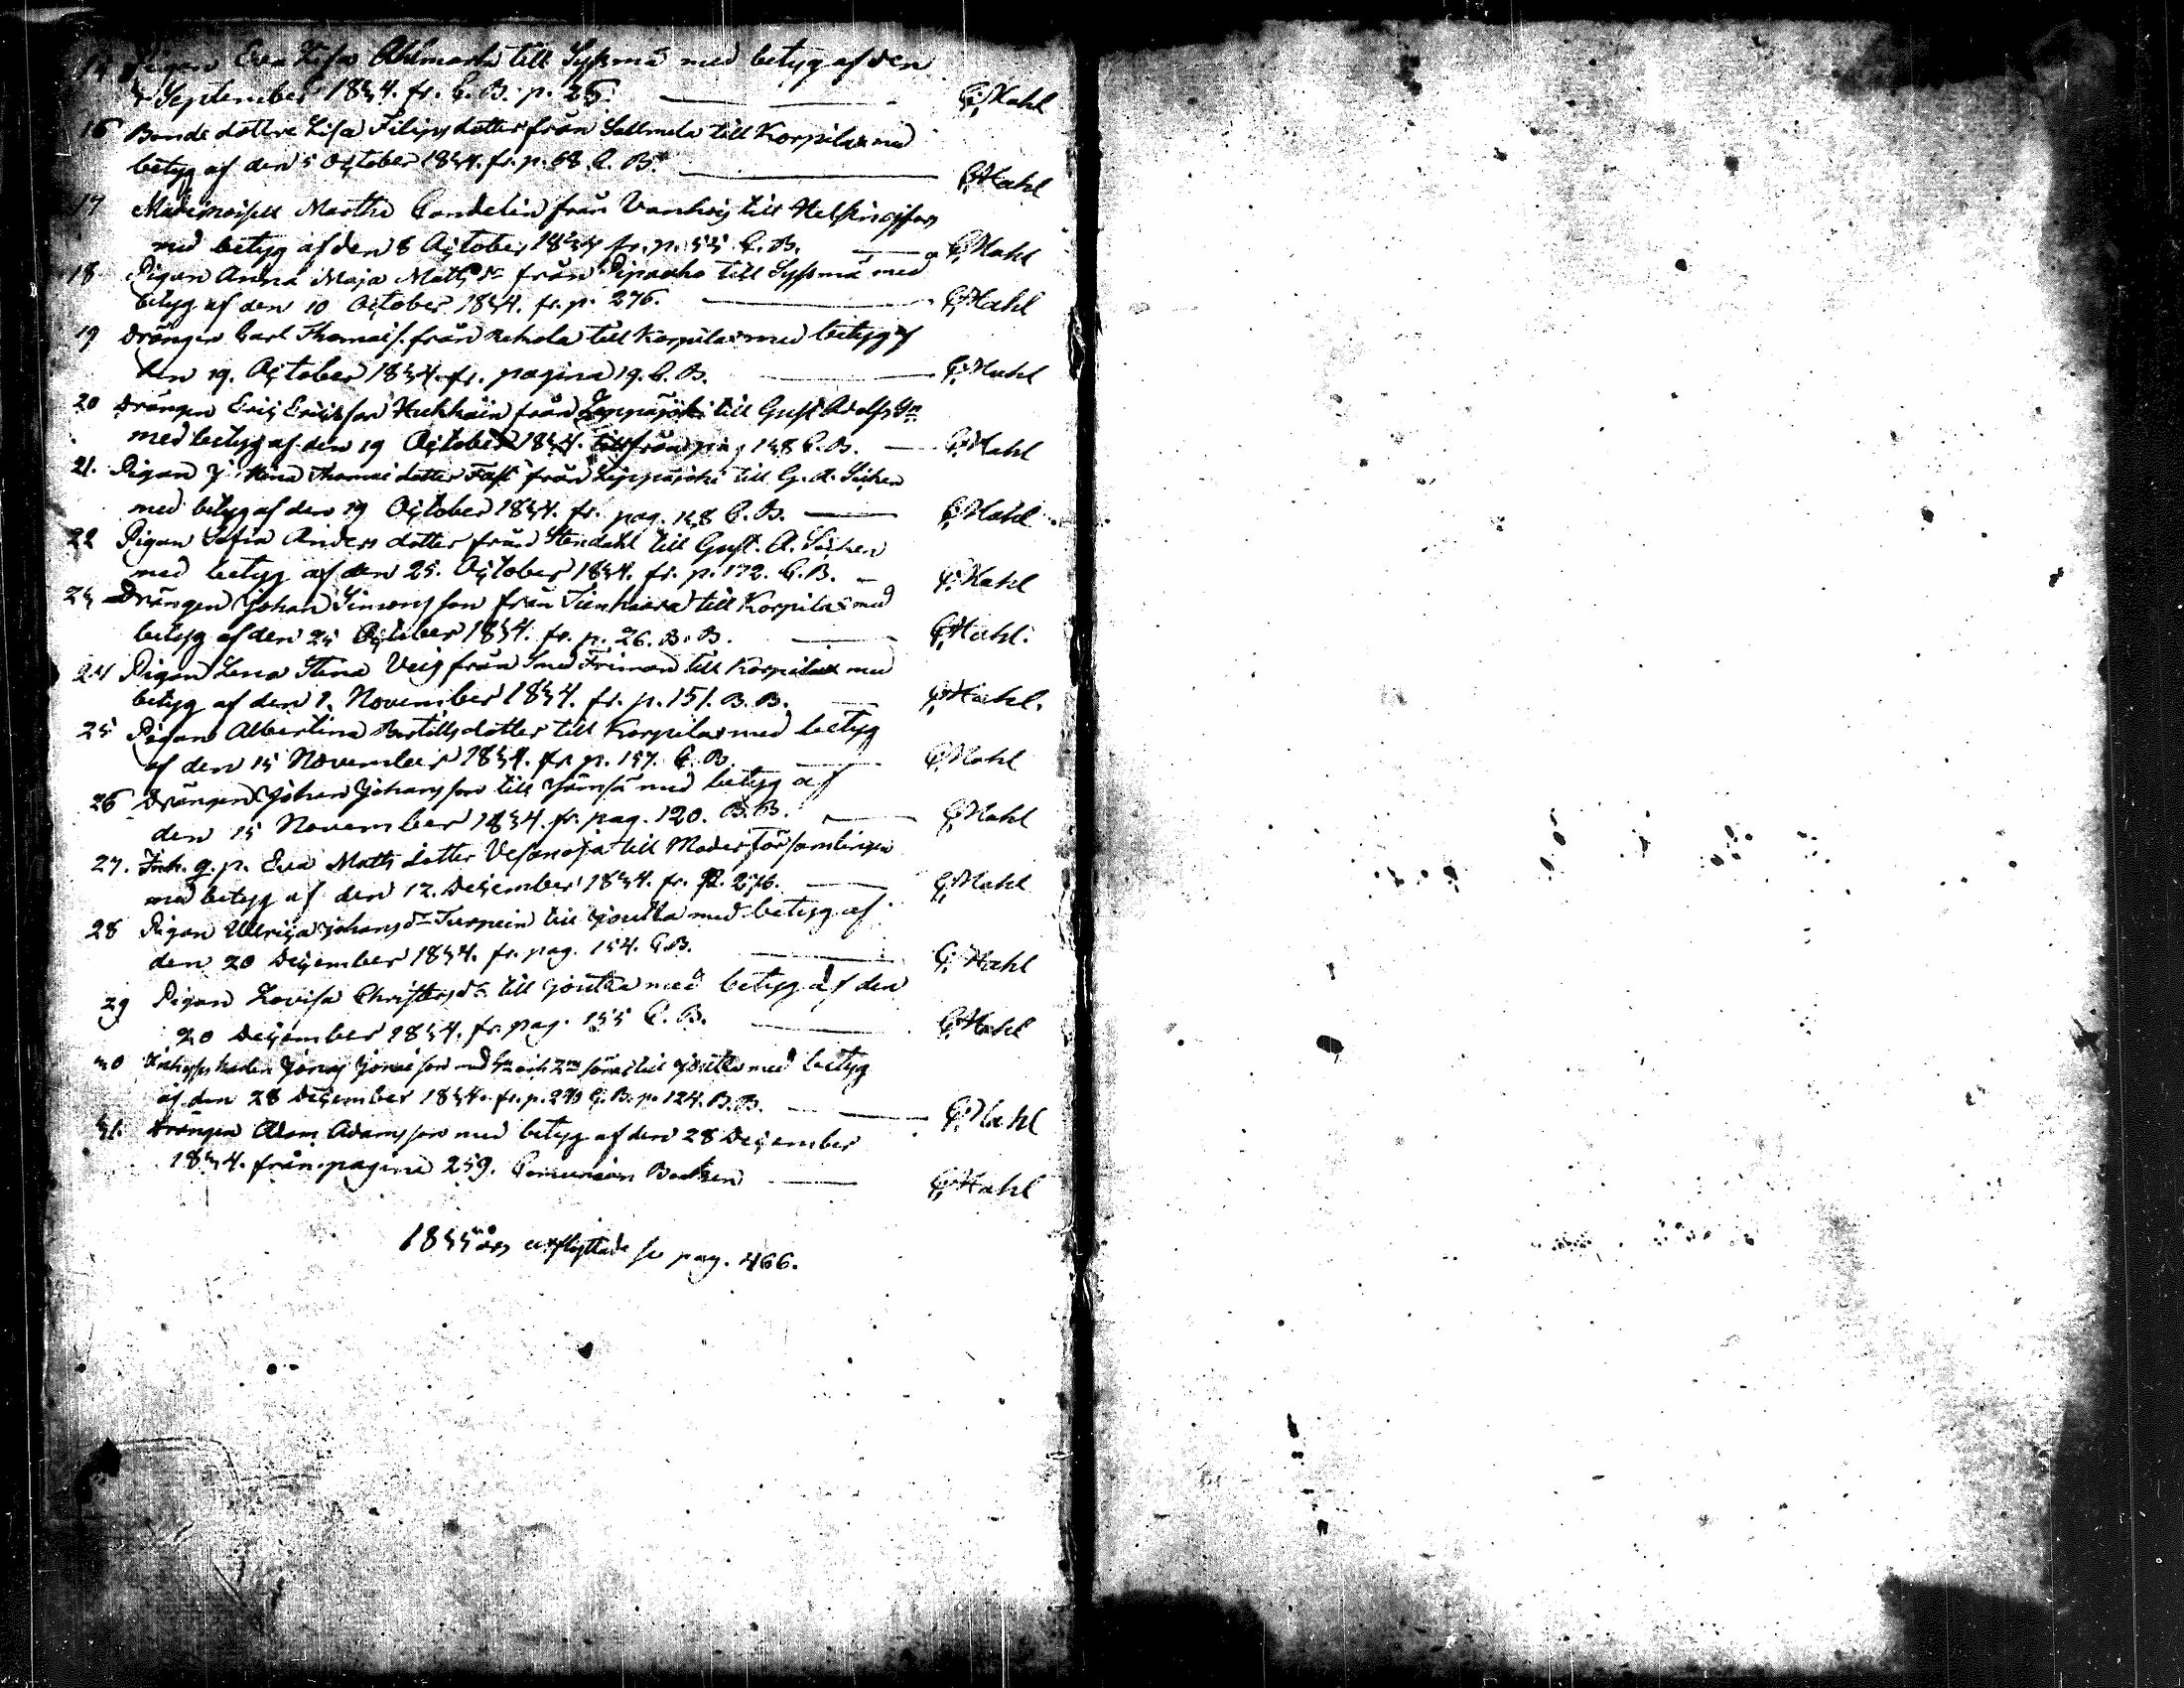 15 Pigan Eva Lisa Ahlmark till Sysmä med betyg af den
September 1834. fr. C. B. p. 26. C. Hahl
16 Bonde dottren Lisa Filipsdotter från Sallmela till Korpilax med
betyg af den 5 October 1834. fr. p. 68 C. B. C. Hahl
17 Mademoisell Martha Candelin från till Helsingfors
med betyg af den 8 October 1834 fr. p. C. B. C. Hahl
18 Pigan Anna Maja Matts dr från till Sysmä med
betyg af den 10 October 1834. fr. p. 276. C. Hahl
19 Drängen Carl Thomass. från Rekola till Korpilax med betyg af
den 19. October 1834. fr. pagina 19. C. B. C. Hahl
20 Drängen Eric Ericsson från Leppäjoki till Gust. Adolfs Sn
med betyg af den 19 October 1834. från pag 138 C. B. C. Hahl
21. Pigan Thomas dotter från Leppäjoki till G. A. Socken
med betyg af den 19 October 1834. fr. pag. 138 C. B. C. Hahl
22 Pigan Sofia Anders dotter från Stendahl till Gust. A. Socken
med betyg af den 25. October 1834. fr. p. 172. C. B. C. Hahl
23 Drängen Johan Simonsson från till Korpilax med
betyg af den 25 October 1834. fr. p. 26. B. B. C. Hahl.
24 Pigan Lena Stina från Smed Friman till Korpilax med
betyg af den 1. November 1834. fr. p. 151. B. B. C. Hahl.
25 Pigan Albertina Bertills dotter till Korpilax med betyg
af den 15 November 1834. fr. p. 157. C. B. C. Hahl
26 Drängen Johan Johansson till Jämsä med betyg af
den 15 November 1834. fr. pag. 120. B. B. C. Hahl
27. Inh. g. p. Eva Matts dotter Vesanoja till Moderförsamlingen
med betyg af den 12. December 1834. fr. p. 276. C. Hahl
28 Pigan Ulrica Johans dr Turpein till Joutsa med betyg af
den 20 December 1834. fr. pag. 154. C. B. C. Hahl
29 Pigan Lovisa Christers dr till Joutsa med betyg af den
20 December 1834. fr. pag. 155 C. B. C. Hahl
30 Jonas Jonasson med och 2ne söner till Joutsa med betyg
af den 28 December 1834. fr. p. C. B. p. 124. B. B. C. Hahl
31. Drängen Adam Adamsson med betyg af den 28 December
1834. från pagina 259. Comunion Boken C. Hahl
1835 års utflyttade se pag. 466.